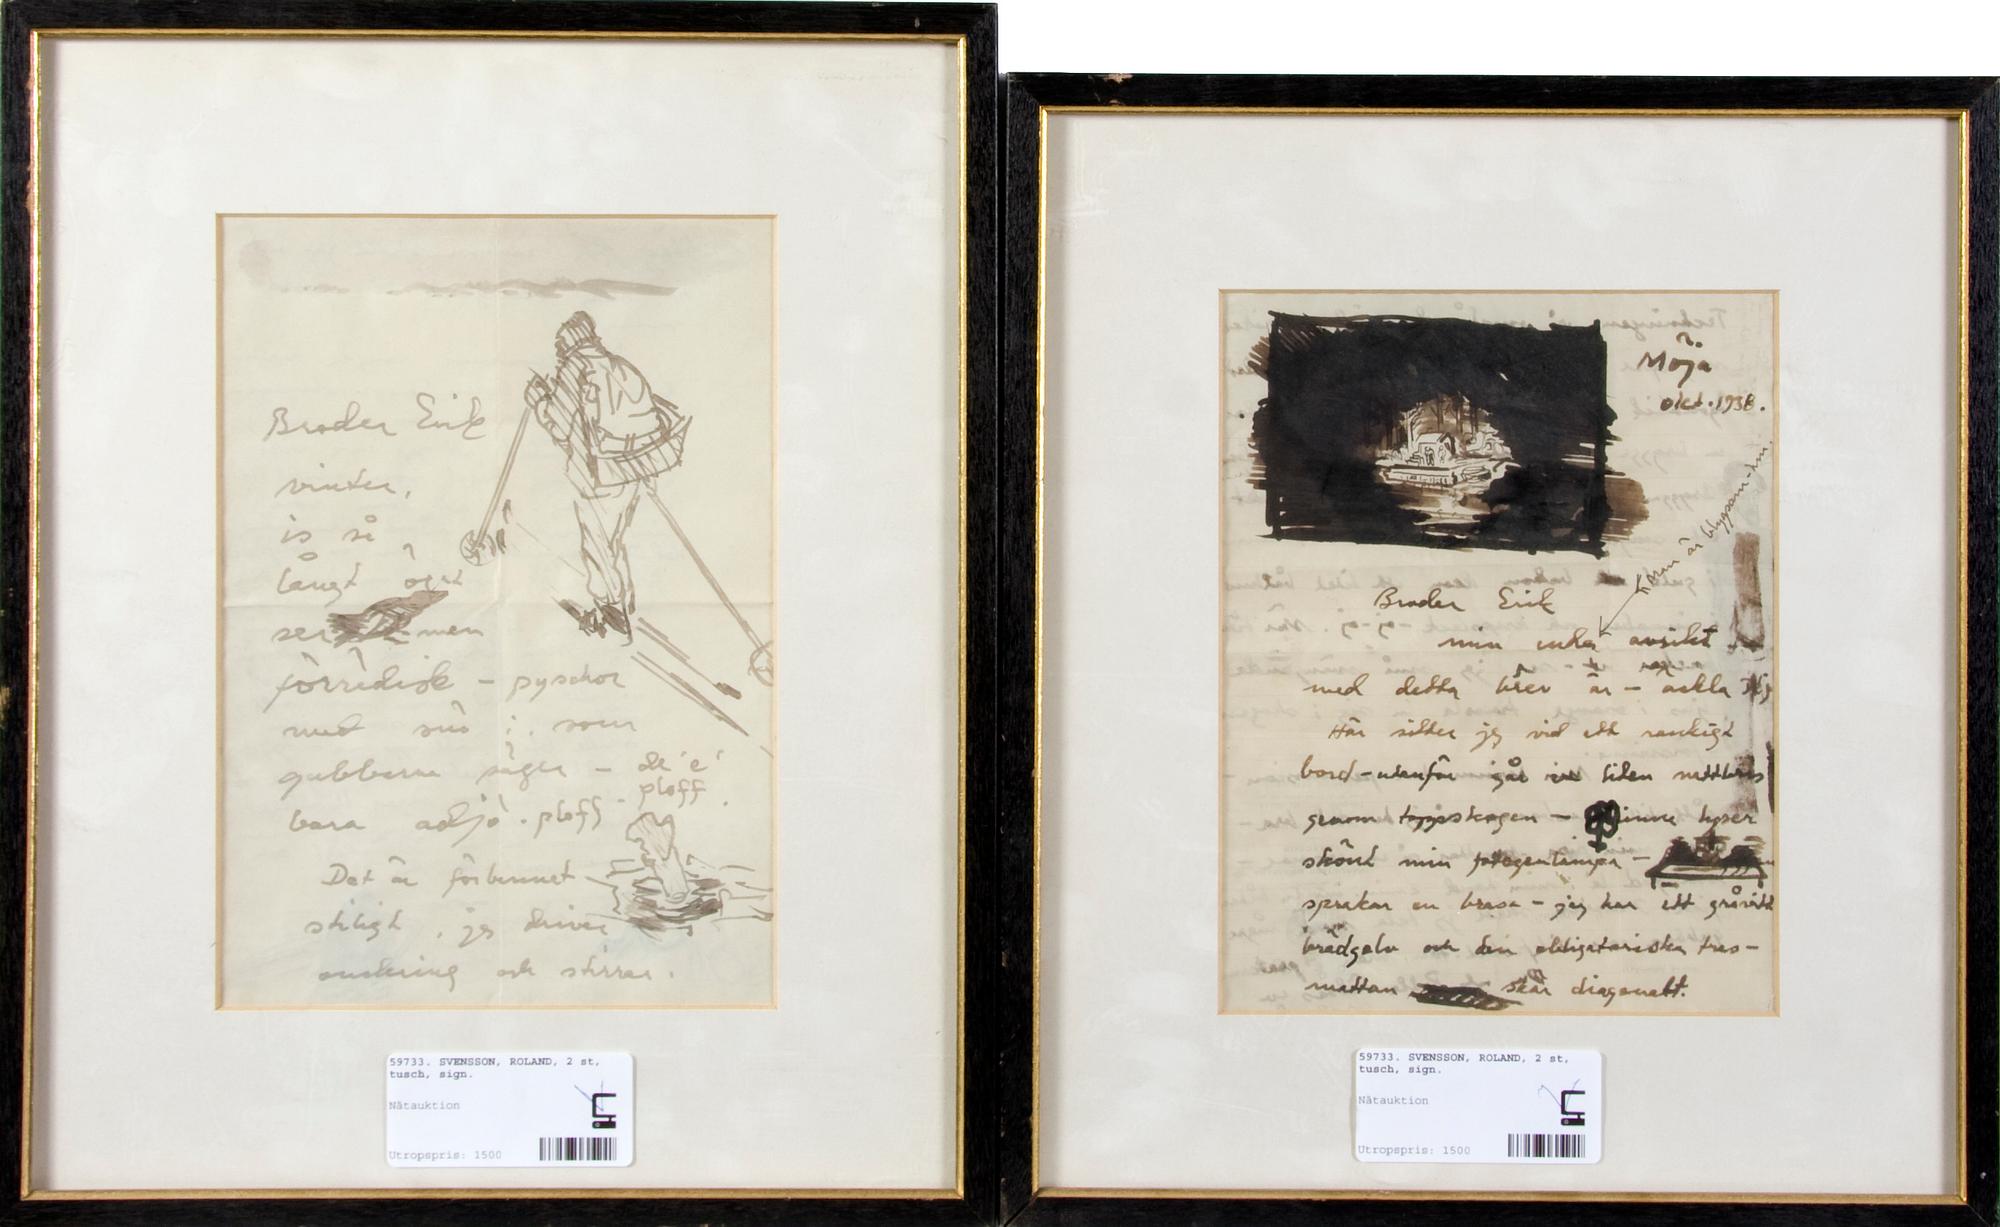 Broder Erik
vinter,
is så
långt ögat
ser men
förrädisk –
med snö i. som
gubbarna säger – de 'e'
ploff.
bara adjö. ploff
Det är förbannat
stiligt, jag driver
omkring och stirrar.
59733. SVENSSON, ROLAND, 2 st,
tusch, sign.
Nätauktion
Utropspris: 1500
Möja
okt. 1938.
han är blygsam
Broder Erik
min enda avsikt
med detta brev är –
Här sitter jag vid ett rankigt
bord – utanför går liden
genom skogen – inne lyser
skönt min fotogenlampa –
sprakar en brasa – jag har ett gråvitt
brädgolv och den obligatoriska tras-
mattan skär diagonalt.
59733. SVENSSON, ROLAND, 2 st,
tusch, sign.
Nätauktion
Utropspris: 1500